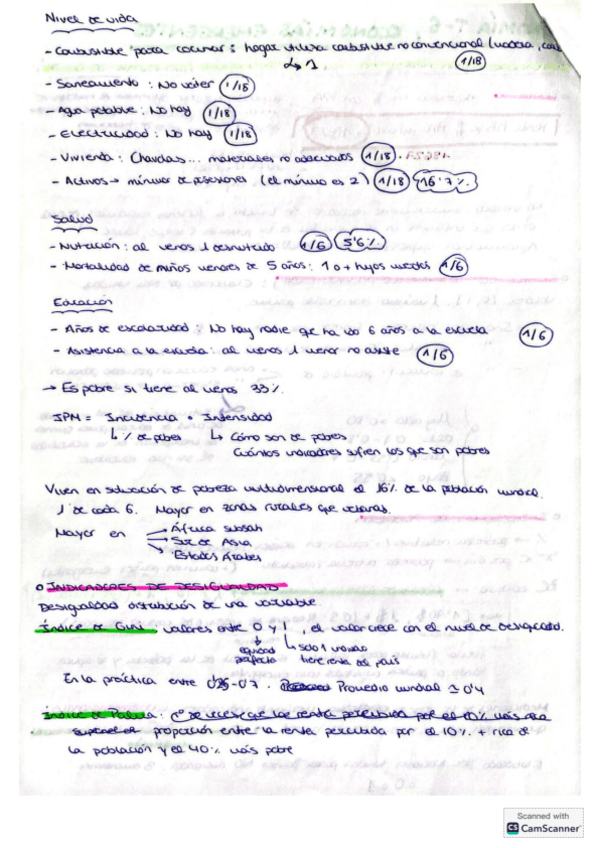 Nivel de vida
- Combustible para cocinar: hogar utiliza combustible no convencional (madera, car
↳ 1 1/18
- Saneamiento: No váter 1/18
- Agua potable: No hay 1/18
- Electricidad: No hay 1/18
- Vivienda: Chavolas... materiales no adecuados 1/18.
- Activos → mínimo de posesiones (el mínimo es 2) 1/18 16'7%
Salud
- Nutrición: al menos 1 desnutrido 1/6 5'6%
- Mortalidad de niños menores de 5 años: 1 o + hijos 1/6
Educación
- Años de escolaridad: No hay nadie que ha ido 6 años a la escuela 1/6
- Asistencia a la escuela: al menos 1 menor no asiste 1/6
→ Es pobre si tiene al menos 33%.
IPM = Incidencia • Intensidad
↳ % de pobres ↳ Cómo son de pobres
Cuántos indicadores sufren los que son pobres
Viven en situación de pobreza multidimensional el 16% de la población mundial.
1 de cada 6. Mayor en zonas rurales que urbanas.
Mayor en África subsah
Sur de Asia
Estados Árabes
o INDICADORES DE DESIGUALDAD
Desigualdad distribución de una variable
Índice de Gini valores entre 0 y 1, el valor crece con el nivel de desigualdad.
equidad perfecta ↳ solo 1 individuo tiene renta del país
En la práctica entre 0'25-0'7. Promedio mundial ≃ 0'4
Índice de Palma: Nº de veces que la renta percibida por el 10% más rica
supera el proporción entre la renta percibida por el 10% + rica de
la población y el 40% más pobre
Scanned with
CS CamScanner